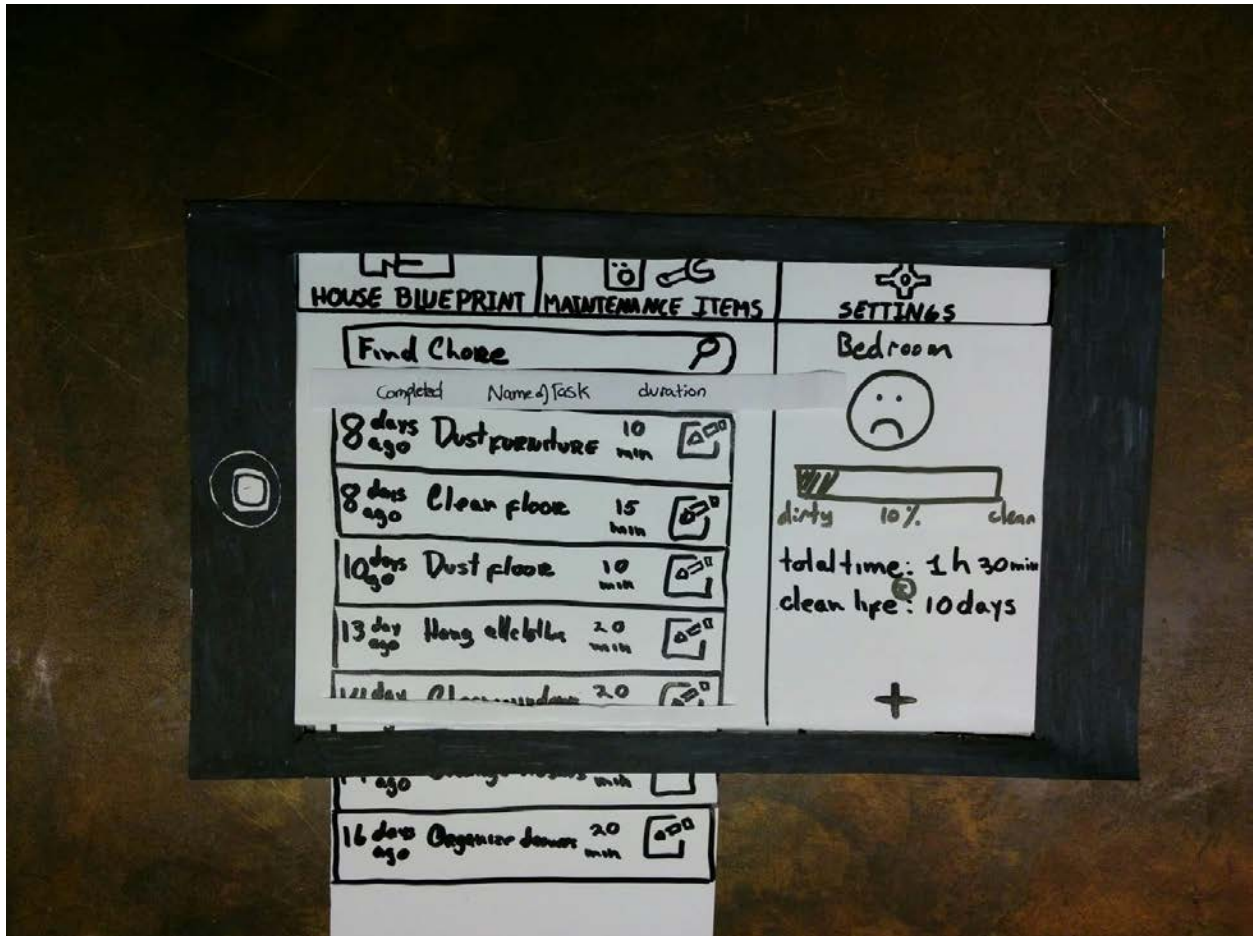 HOUSE BLUEPRINT MAINTENANCE ITEMS SETTINGS
Find Chore
Completed Name of Task duration
8 days ago Dust FURNITURE 10 min
8 days ago Clean floor 15 min
10 days ago Dust floor 10 min
13 day ago Hang 20 min
day 20
ago min
16 days ago Organize 20 min
Bedroom
dirty 10% clean
total time: 1 h 30 min
clean life: 10 days
+